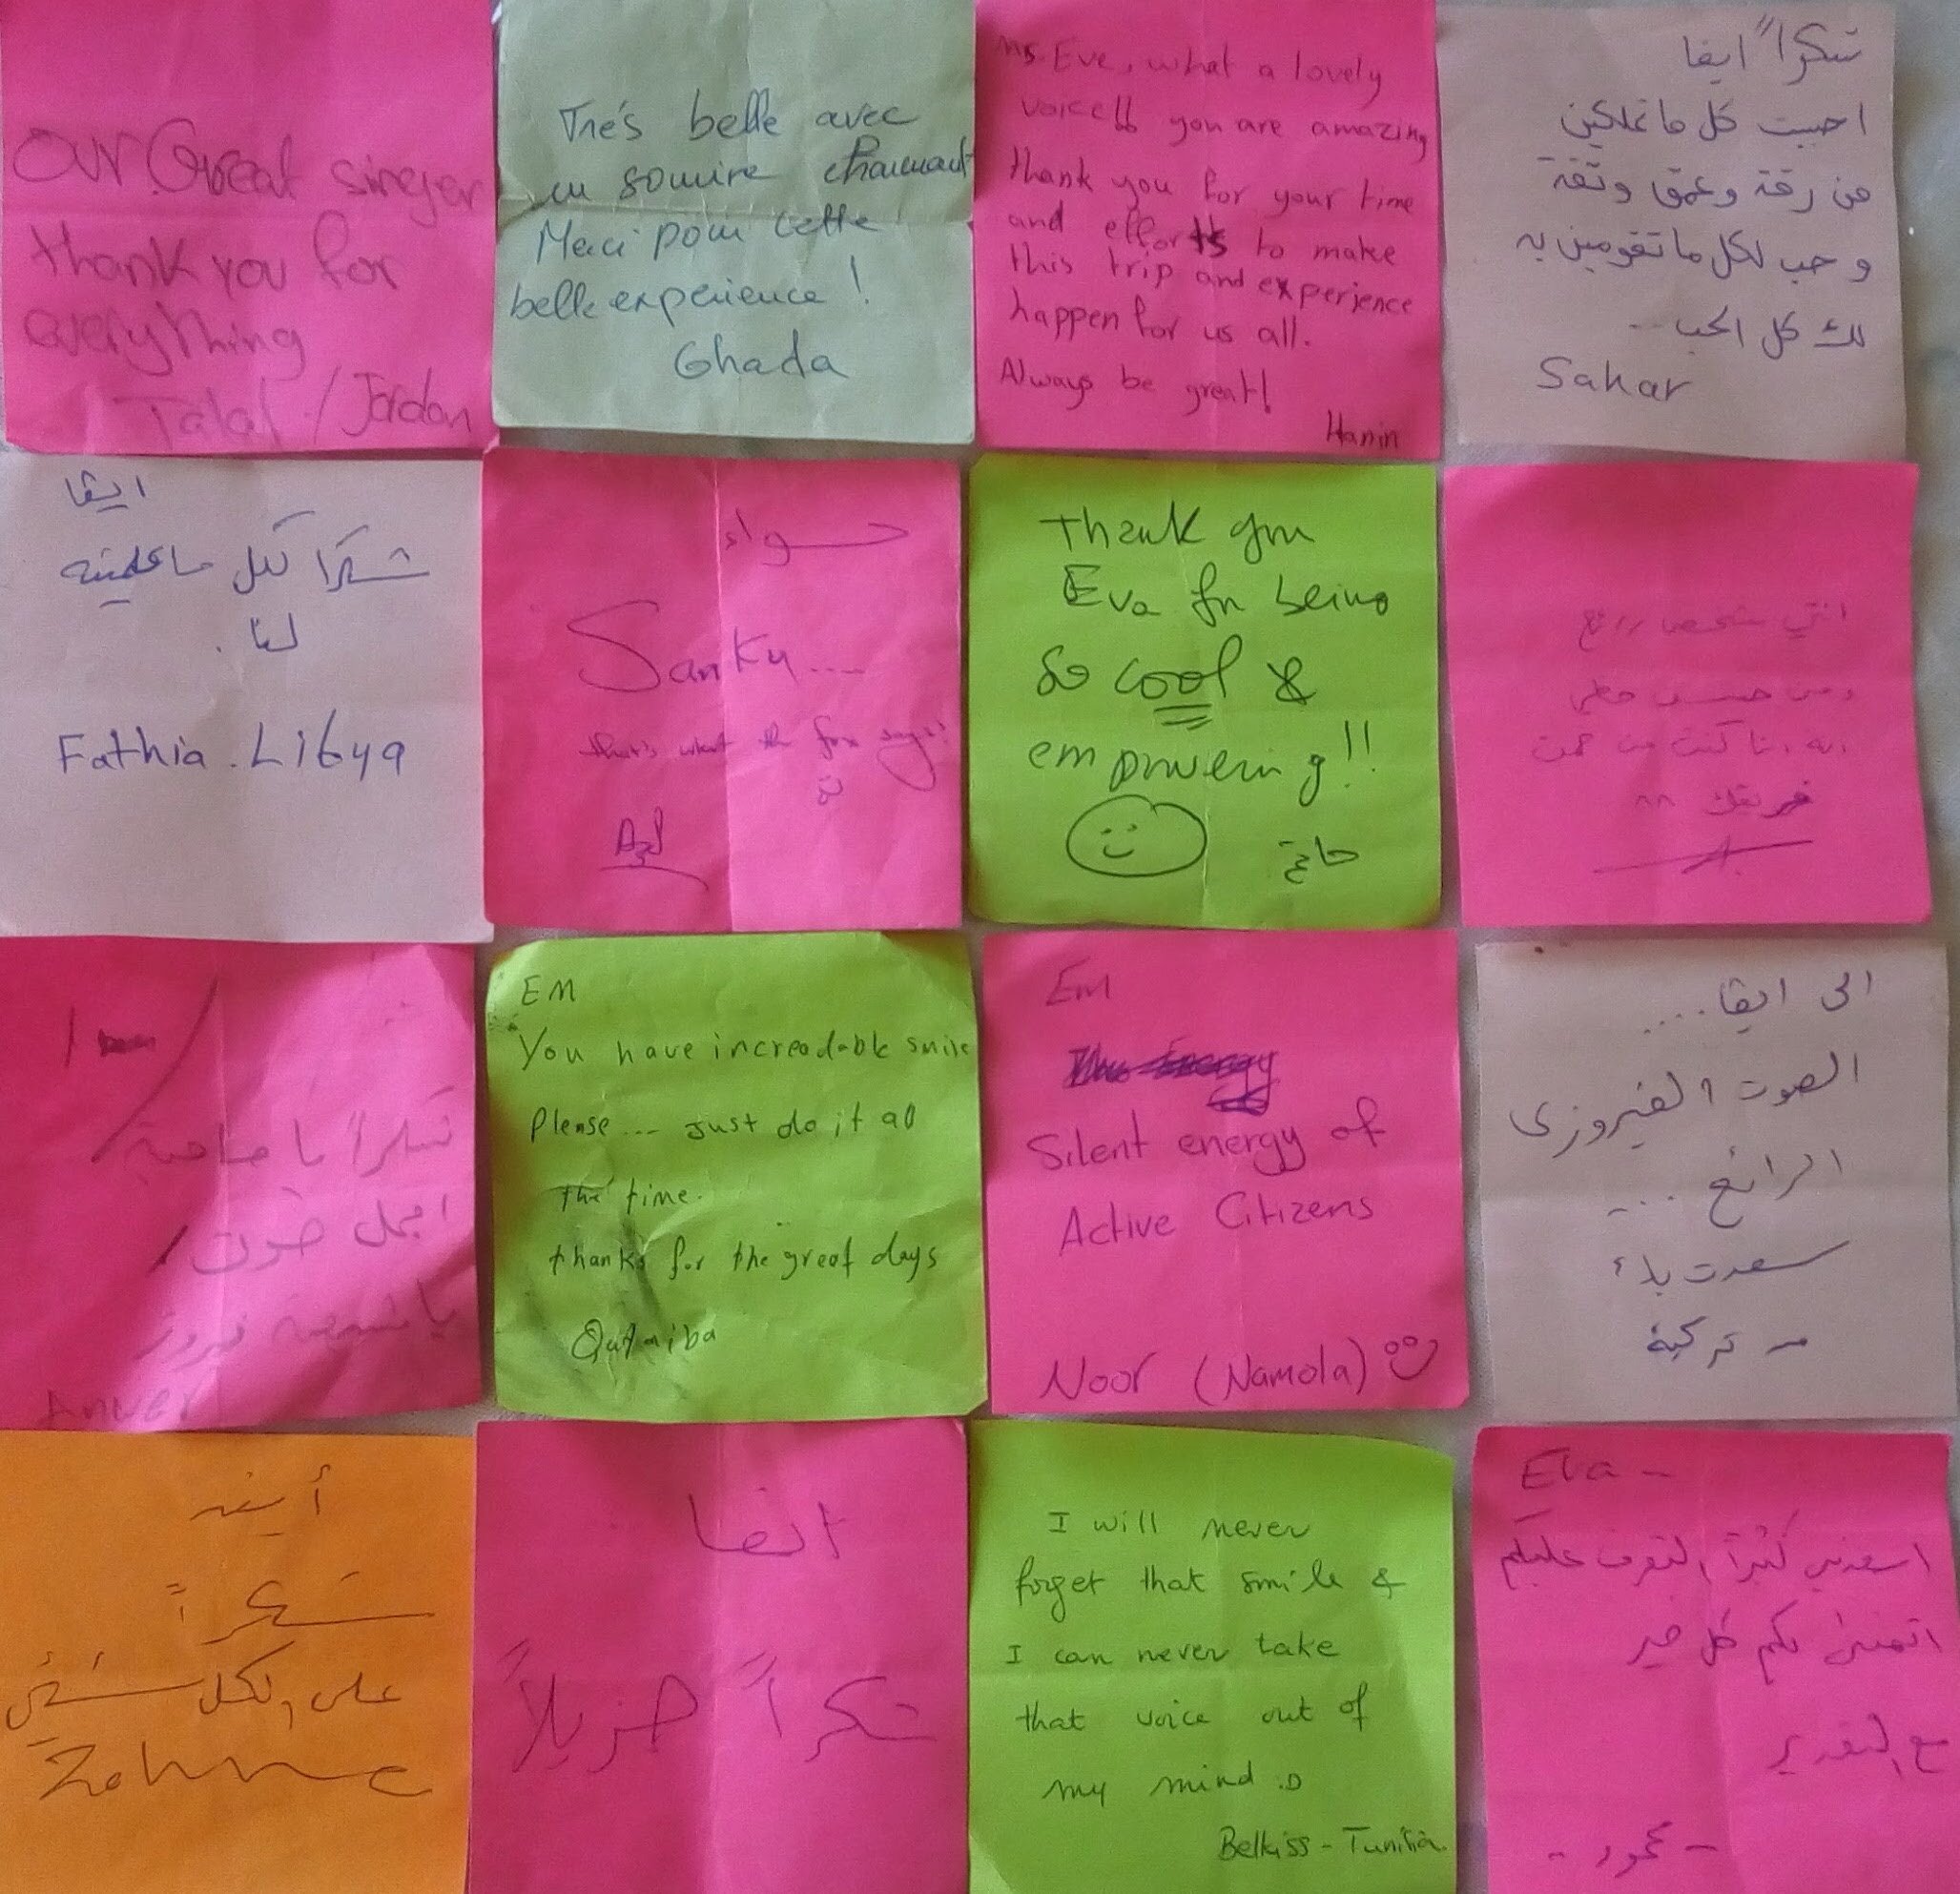 Our Great singer
thank you for
everything
Talal / Jordan
Trés belle avec
un sourire charmant
Merci pour cette
belle experience !
Ghada
Ms. Eve, what a lovely
voice!! you are amazing
thank you for your time
and efforts to make
this trip and experience
happen for us all.
Always be great!
Hanin
شكراً ايفا
احببت كل ما تملكين
من رقة وعمق وثقة
وحب لكل ما تقومين به
لك كل الحب ..
Sahar
ايفا
شكرا لكل ما عملتيه
لنا .
Fathia . Libya
حواء
Sanky ....
that's what the fox says!
Thank you
Eva for being
so cool &
empowering!!
انتي شخص رائع
ومن حسن حظي
انه انا كنت من ضمن
فريقك ^^
I
شكراً يا صاحبة
اجمل صوت
يا شبيهة فيروز
Anwer
EM
You have increadable smile
Please ... just do it all
the time.
thanks for the great days
Qutaiba
Em
Silent energy of
Active Citizens
Noor (Namola)
الى ايفا ....
الصوت الفيروزى
الرائع ...
سعدت بك
تركية
شكراً
على لكل شئ
ايفا
شكراً جزيلاً
I will never
forget that smile &
I can never take
that voice out of
my mind :D
Belkiss - Tunisia
Eva -
اسعدني كثيراً التعرف عليكم
اتمنى لكم كل خير
مع التقدير
- محمود -